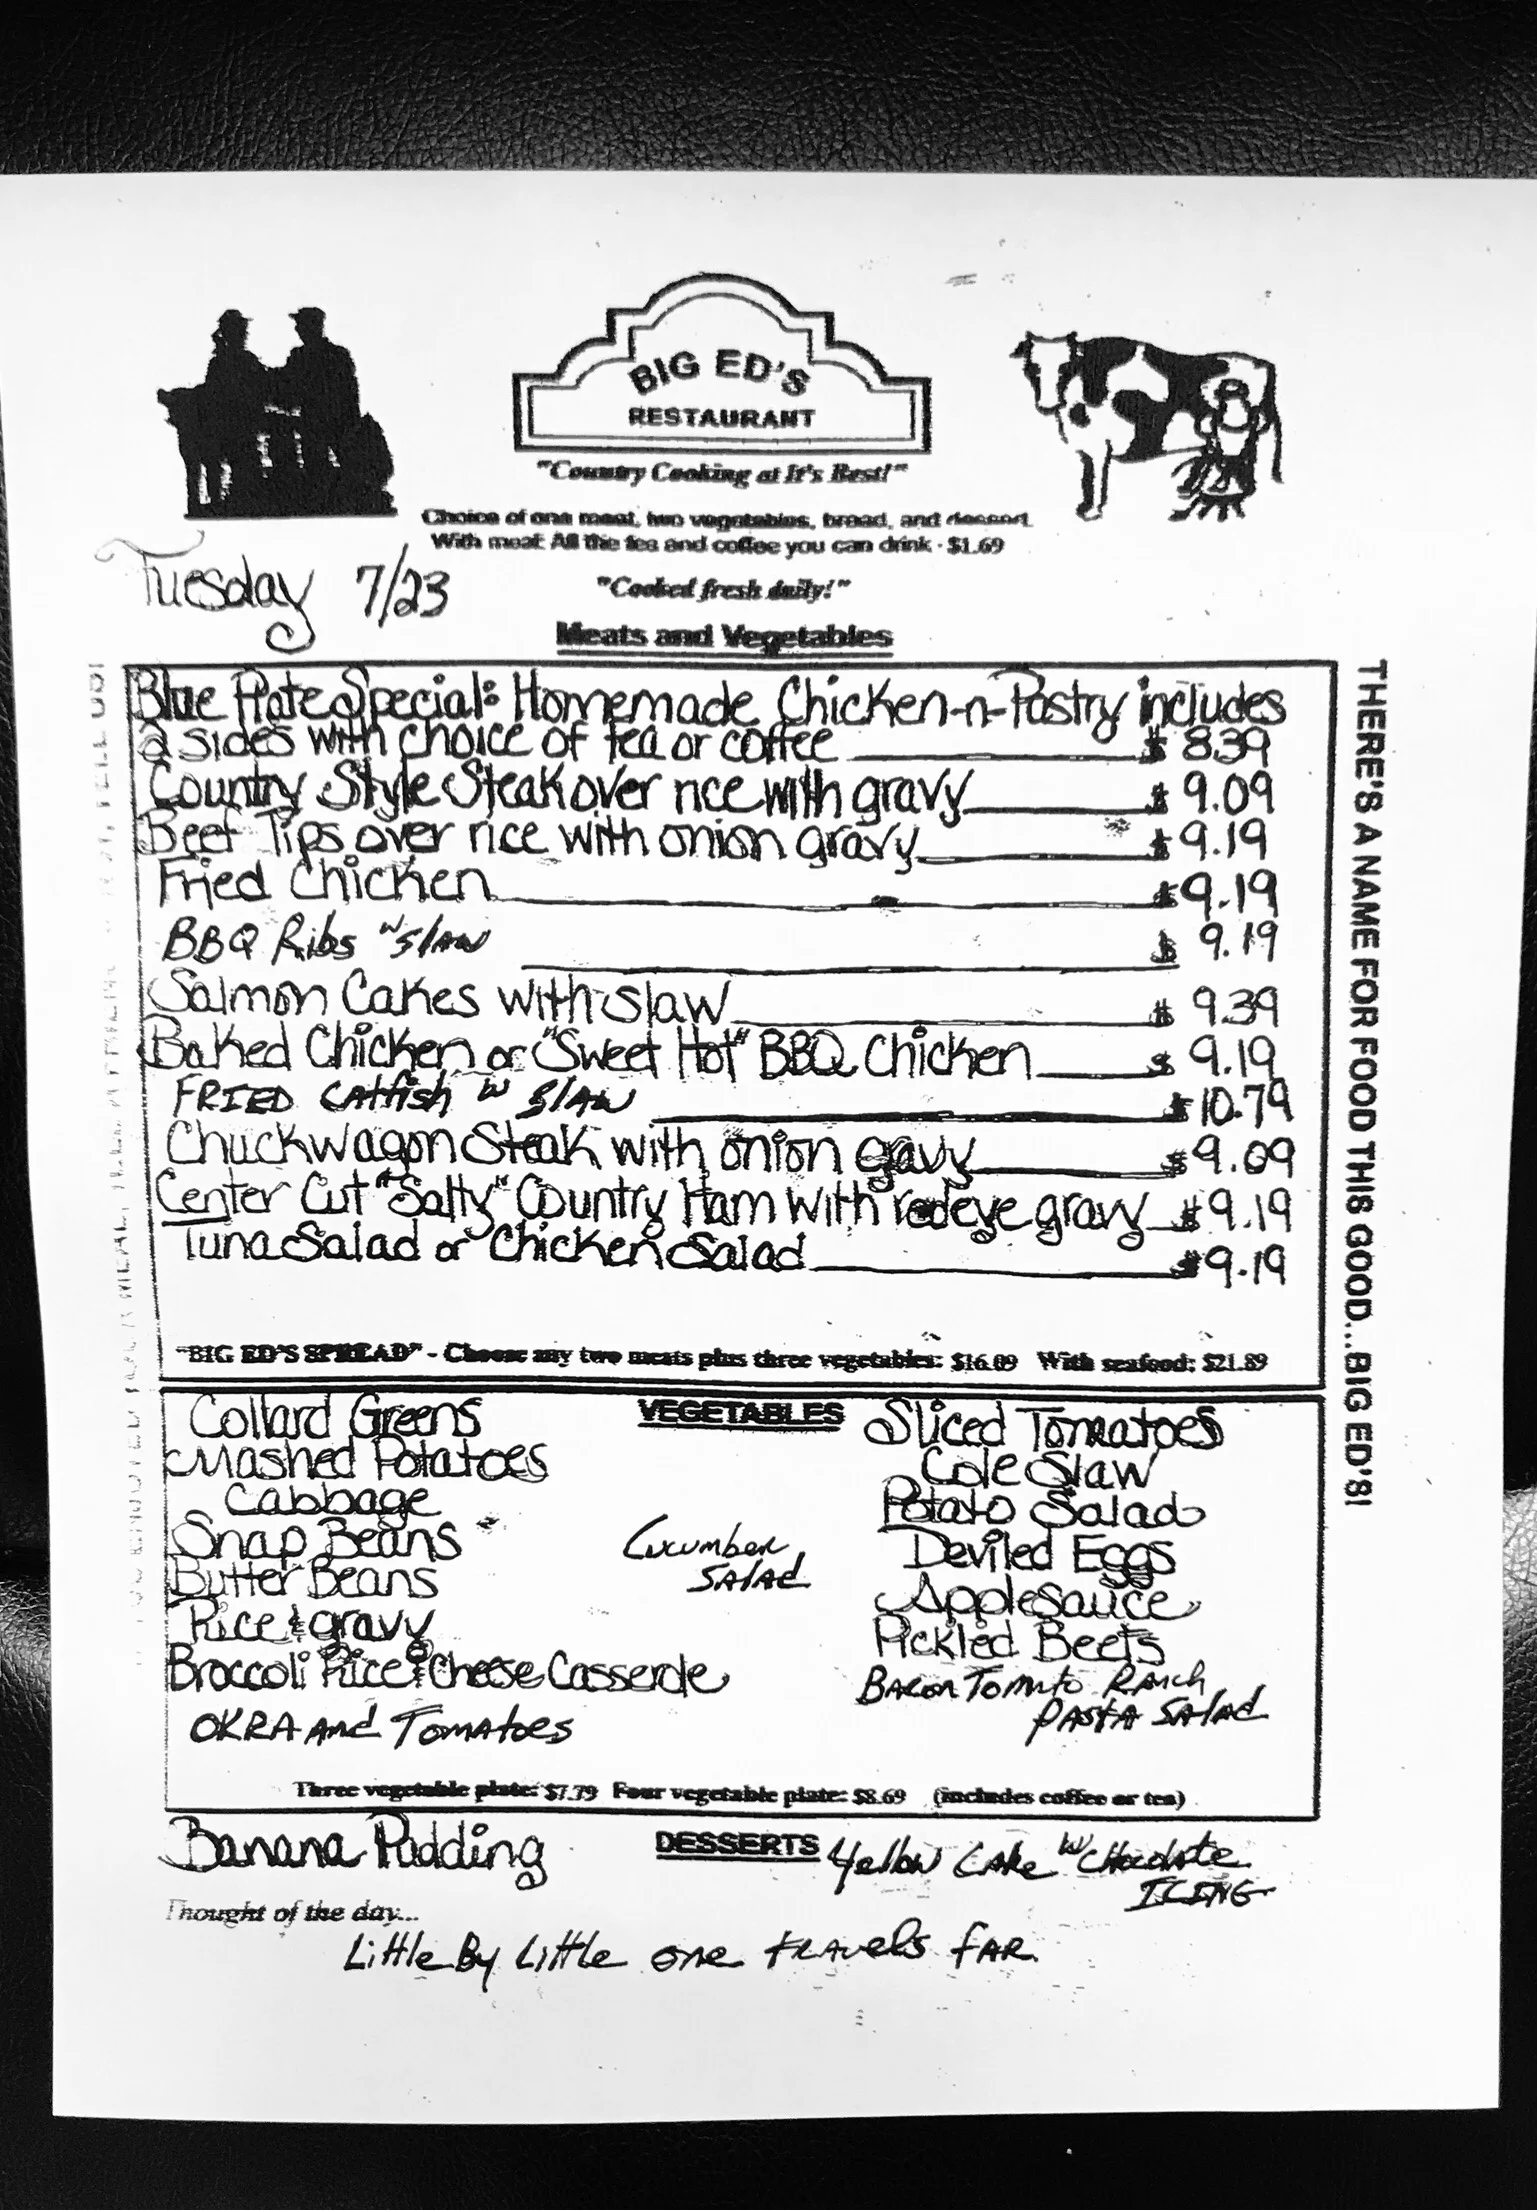 BIG ED'S
RESTAURANT
"Country Cooking at It's Best!"
Choice of one meat, two vegetables, bread, and dessert.
With meat: All the tea and coffee you can drink - $1.69
Tuesday 7/23
"Cooked fresh daily!"
Meats and Vegetables
Blue Plate Special: Homemade Chicken-n-Pastry includes
2 sides with choice of tea or coffee $ 8.39
Country Style Steak over rice with gravy $ 9.09
Beef Tips over rice with onion gravy $ 9.19
Fried Chicken $ 9.19
BBQ Ribs w slaw $ 9.19
Salmon Cakes with slaw $ 9.39
Baked Chicken or "Sweet Hot" BBQ Chicken $ 9.19
FRIED Catfish w slaw $ 10.79
Chuckwagon Steak with onion gravy $ 9.09
Center Cut "Salty" Country Ham with redeye gravy $ 9.19
Tuna Salad or Chicken Salad $ 9.19
"BIG ED'S SPREAD" - Choose any two meats plus three vegetables: $16.09 With seafood: $21.89
THERE'S A NAME FOR FOOD THIS GOOD...BIG ED'S!
VEGETABLES
Collard Greens
Mashed Potatoes
Cabbage
Snap Beans
Butter Beans
Rice & gravy
Broccoli Rice & Cheese Casserole
OKRA And Tomatoes
Cucumber
Salad
Sliced Tomatoes
Cole Slaw
Potato Salad
Deviled Eggs
Applesauce
Pickled Beets
Bacon Tomato Ranch
Pasta Salad
Three vegetable plate: $7.79 Four vegetable plate: $8.69 (includes coffee or tea)
DESSERTS
Banana Pudding
Yellow Cake w Chocolate
ICING
Thought of the day...
Little By Little one travels far.